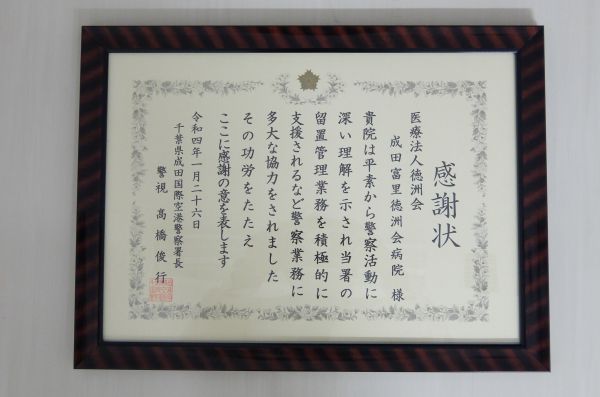 感謝状
医療法人徳洲会
成田富里徳洲会病院 様
貴院は平素から警察活動に
深い理解を示され当署の
留置管理業務を積極的に
支援されるなど警察業務に
多大な協力をされました
その功労をたたえ
ここに感謝の意を表します
令和四年一月二十六日
千葉県成田国際空港警察署長
警視 高橋俊行